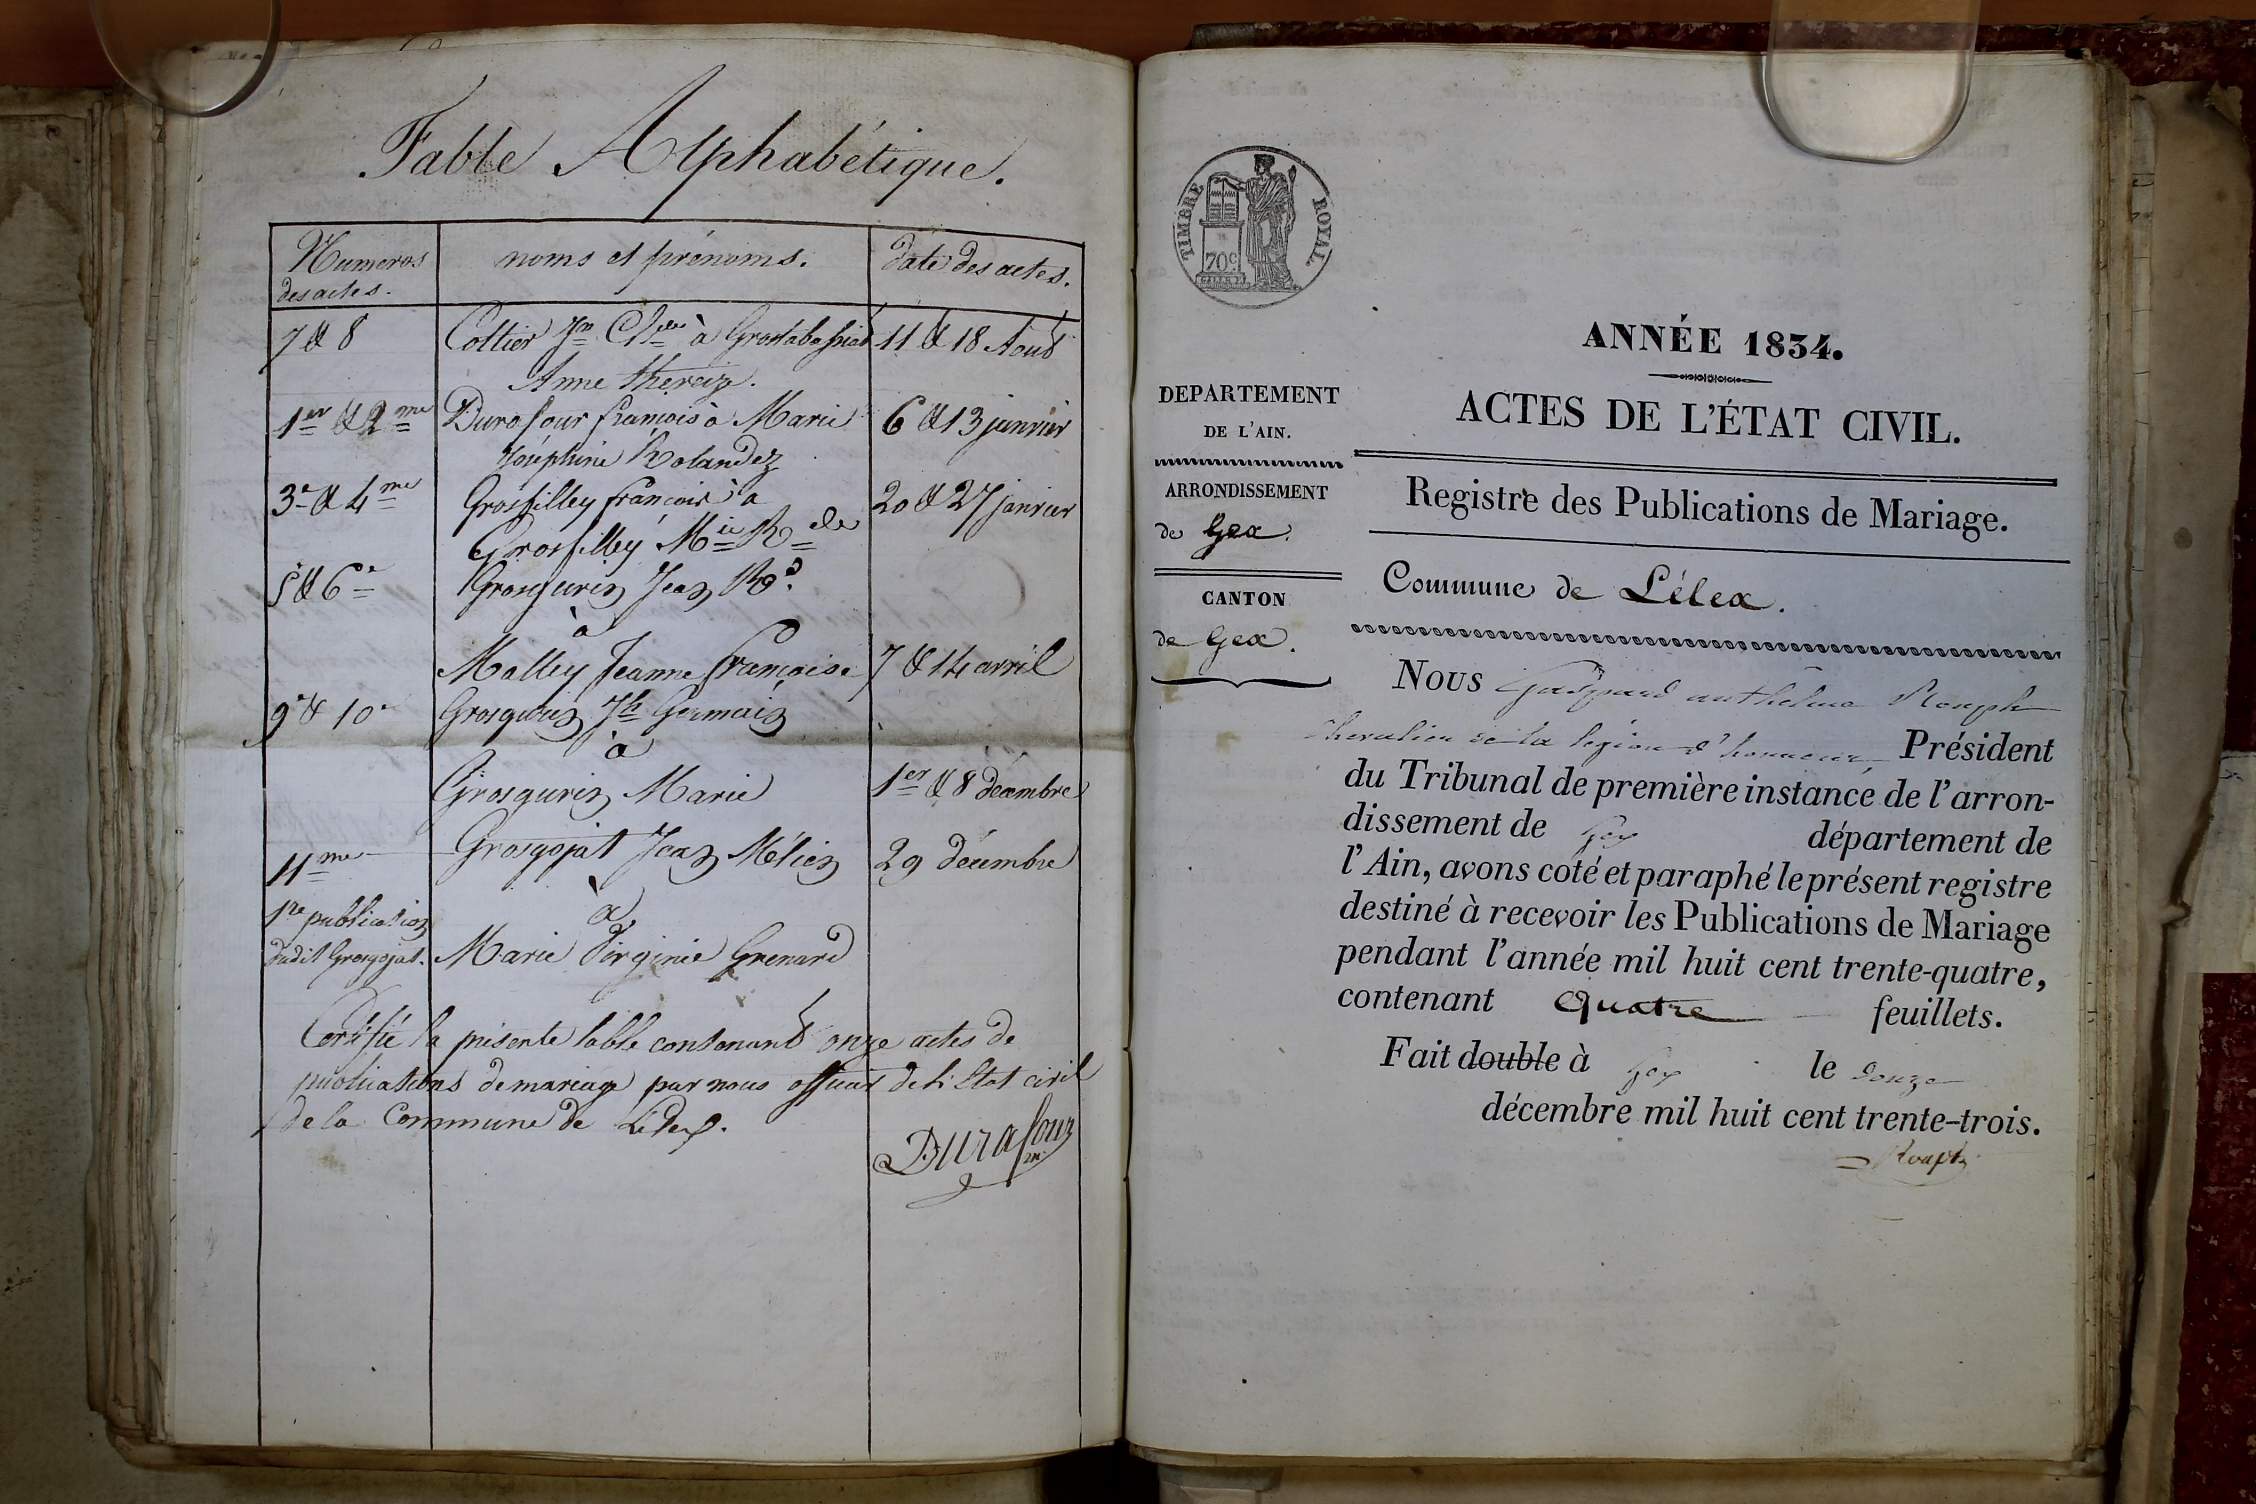 Table Alphabétique.
Numeros des actes.
noms et prénoms.
date des actes.
7 & 8 Coltier Jn Clde à 11 & 18 Août
Anne thereize.
1er & 2me Durafour françois à Marie 6 & 13 janvier
Joséphine Rolandez
3e & 4me Grosfilley françois à 20 & 27 janvier
Grosfilley Mie Rde
5e & 6e Grosgurin Jean
à
Malley Jeanne françoise 7 & 14 avril
9e & 10e Grosgurin Jh Germain
à
Grosgurin Marie 1er & 8 décembre
11me Grosgojat Jean Mélien 29 décembre
à
1re publication
dudit Grosgojat. Marie Virginie Grenard
Certifié la présente table contenant onze actes de
publications de mariage par nous officier de l'Etat civil
de la Commune de Lélex.
Durafour
TIMBRE ROYAL
70c
ANNÉE 1834.
ACTES DE L'ÉTAT CIVIL.
DEPARTEMENT
DE L'AIN.
ARRONDISSEMENT
de Gex.
CANTON
de Gex.
Registre des Publications de Mariage.
Commune de Lélex.
Nous Gaspard anthelme Rouph
chevalier de la légion d'honneur, Président
du Tribunal de première instance de l'arron-
dissement de Gex département de
l'Ain, avons coté et paraphé le présent registre
destiné à recevoir les Publications de Mariage
pendant l'année mil huit cent trente-quatre,
contenant Quatre feuillets.
Fait double à Gex le douze
décembre mil huit cent trente-trois.
Rouph